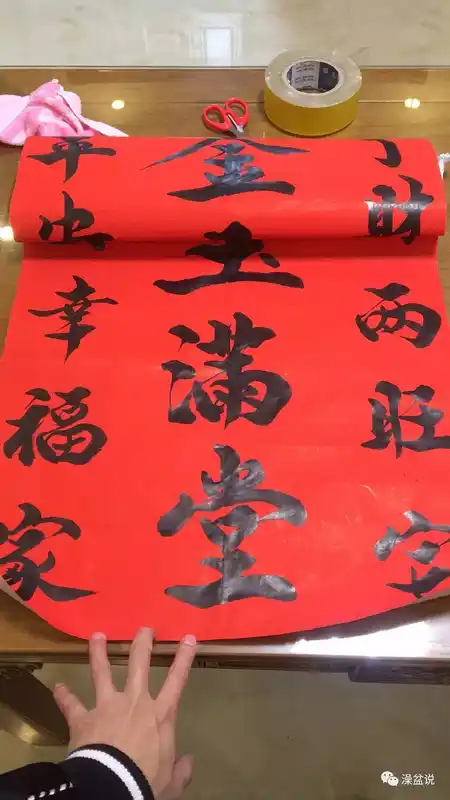 财两旺
金玉满堂
平
幸福家
澡盆说